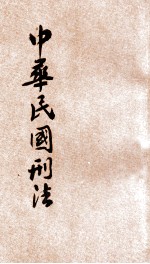 中華民國刑法